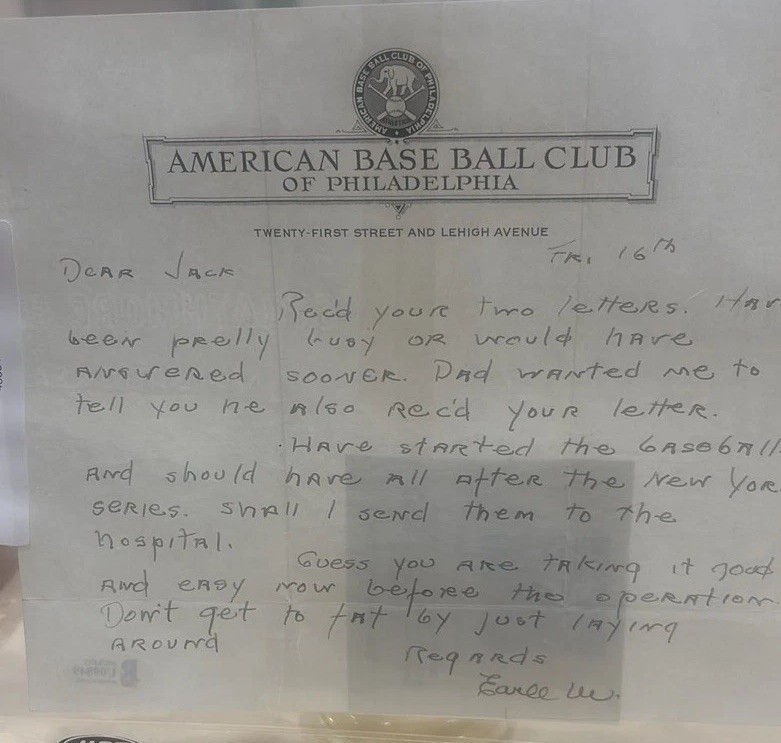 AMERICAN BASE BALL CLUB OF PHILADELPHIA
ATHLETICS
AMERICAN BASE BALL CLUB
OF PHILADELPHIA
TWENTY-FIRST STREET AND LEHIGH AVENUE
FRI. 16th
DEAR JACK
Rec'd your two letters. Hav
been pretty busy or would have
answered sooner. Dad wanted me to
tell you he also rec'd your letter.
Have started the baseball
and should have all after the New Yor
series. Shall I send them to the
hospital.
Guess you are taking it good
and easy now before the operation
Don't get to fat by just laying
around
Regards
Earle M.